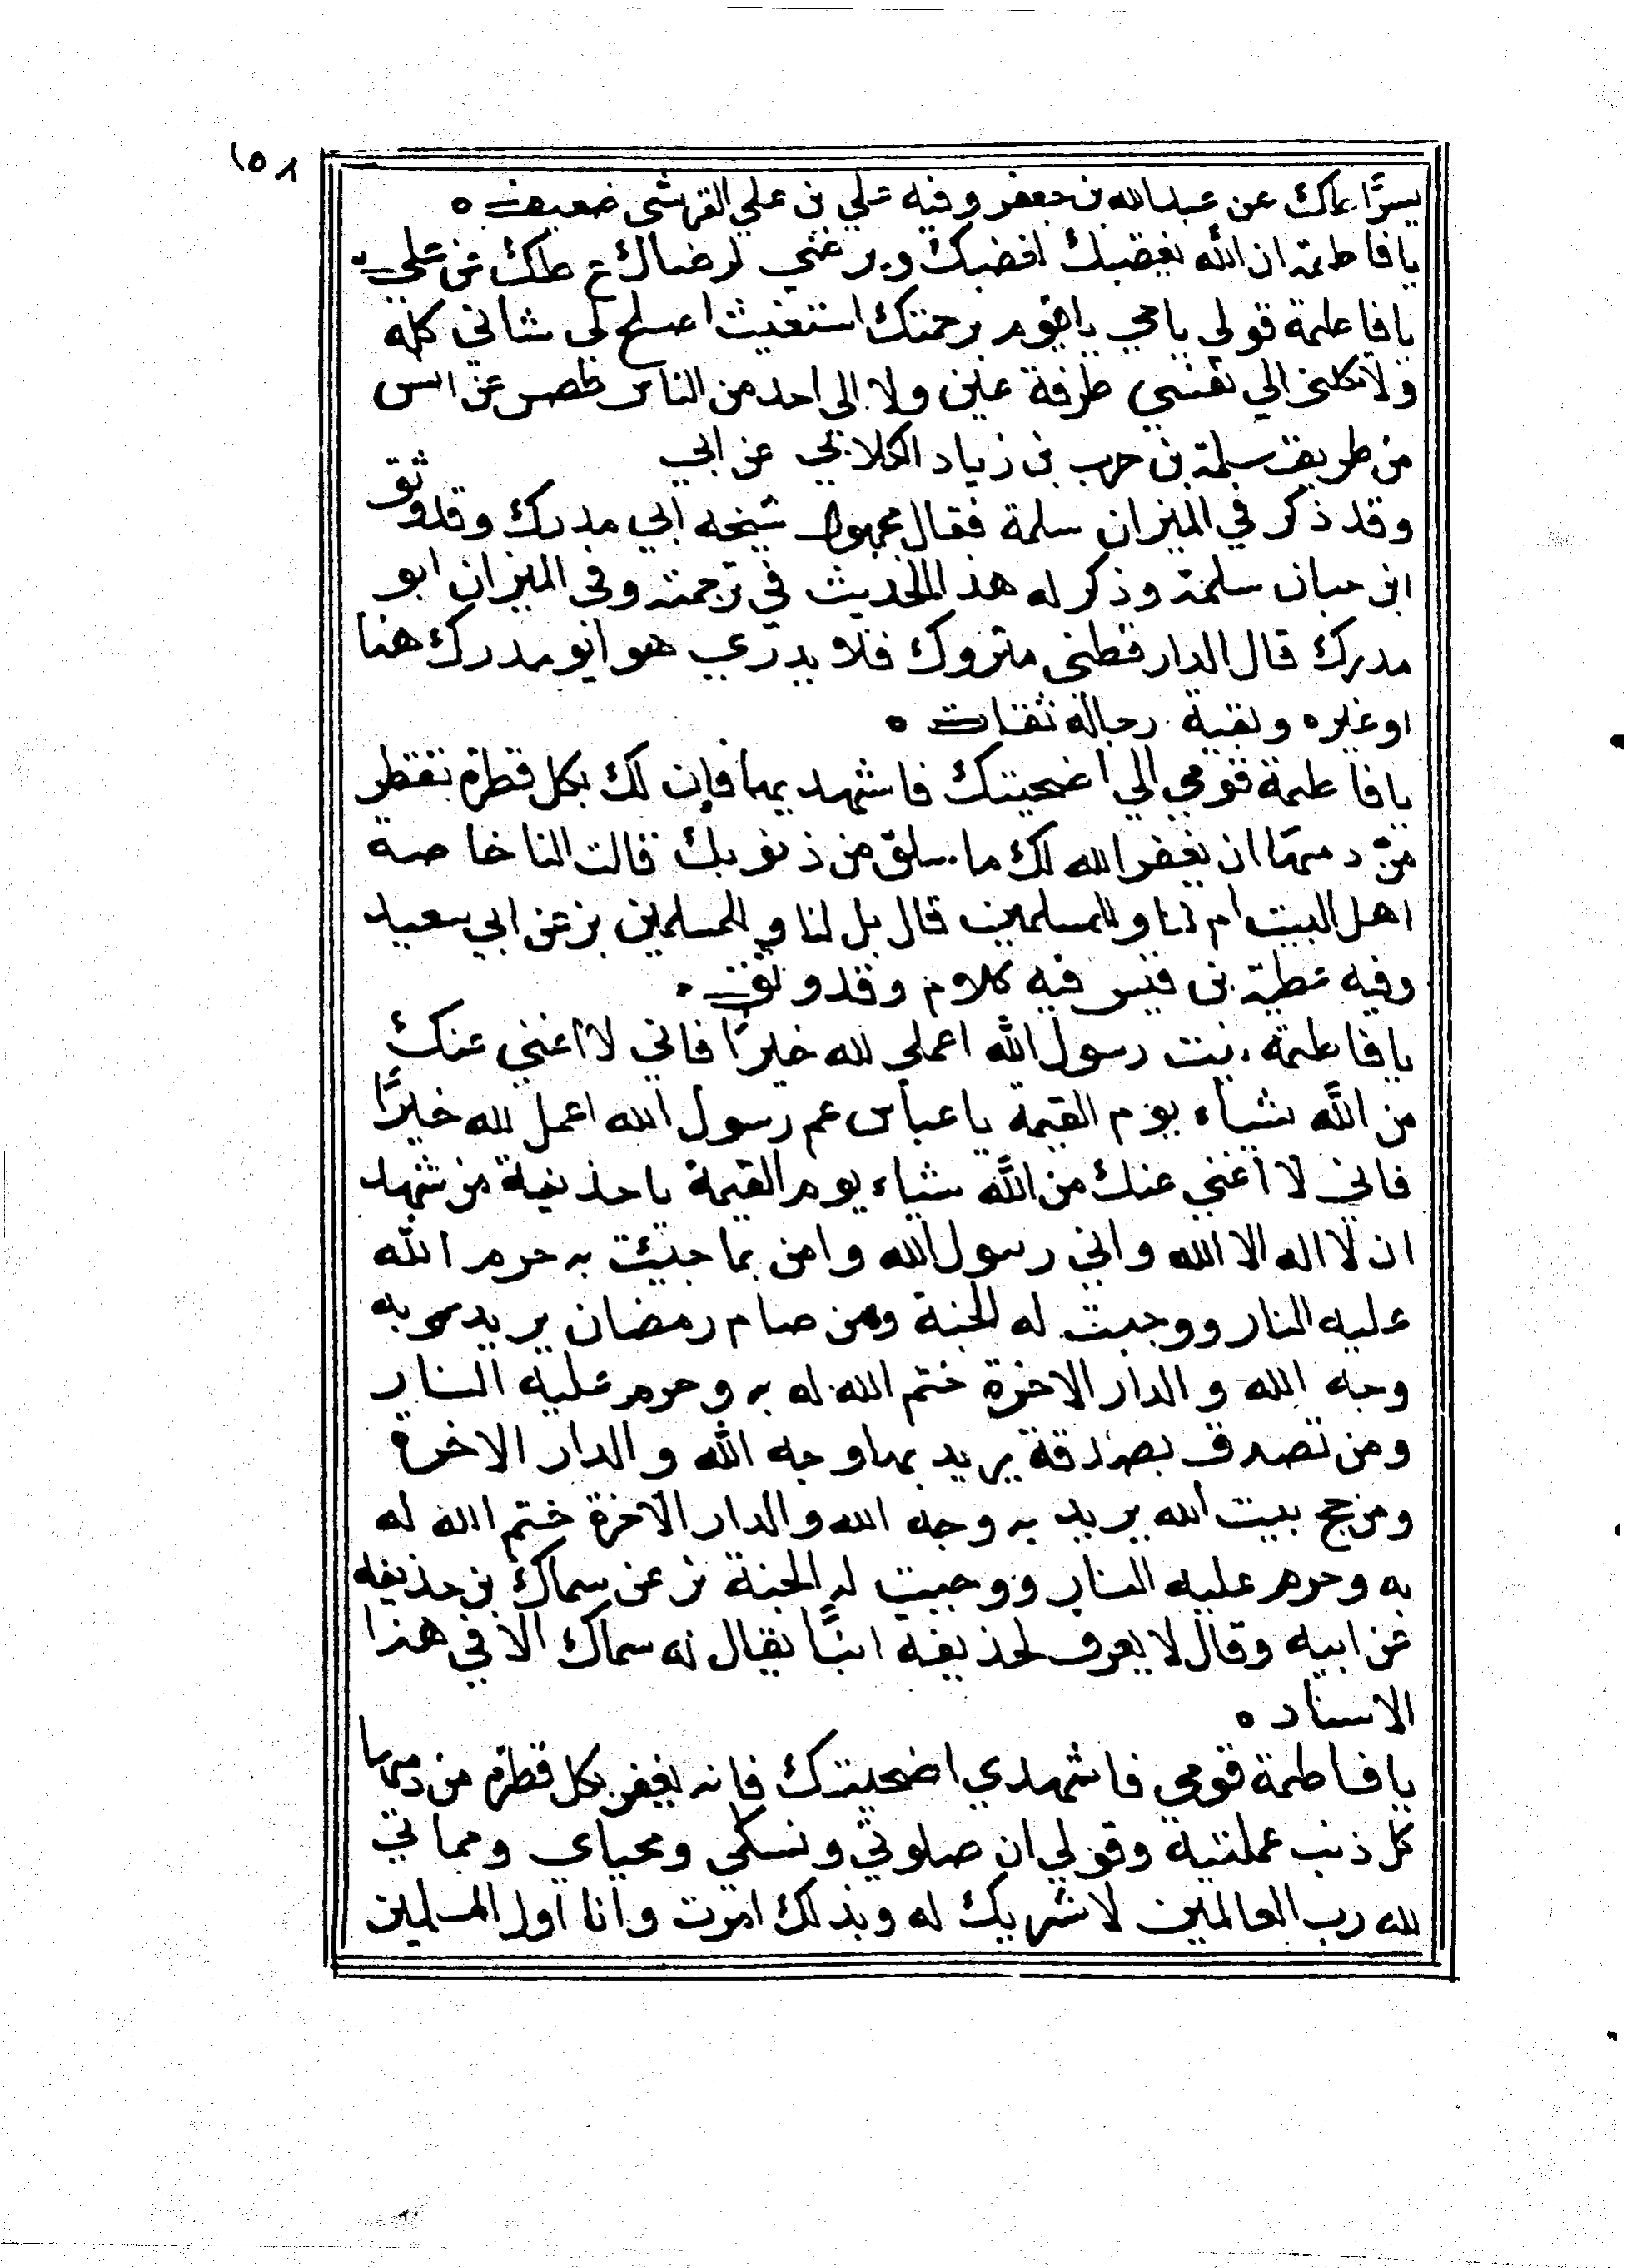 ١٥٨
يسرًا عاك عن عبد الله بن جعفر وفيه علي بن علي القرشي ضعيف ه
يا فاطمة ان الله يغضبك لغضبك ويرضى لرضاك ع طك عن علي
يا فاطمة قولي يا حي يا قيوم برحمتك استغيث اصلح لي شاني كله
ولا تكلني الي نفسي طرفة عين ولا الى احد من الناس طص عن انس
من طريق سلمة بن حرب بن زياد الكلابي عن ابي
وقد ذكر في الميزان سلمة فقال مجهول شيخه ابي مدرك وقد وثق
ابن حبان سلمة وذكر له هذا الحديث في ترجمته وفي الميزان ابو
مدرك قال الدارقطني متروك فلا يدري هو ابو مدرك هنا
او غيره وبقية رجاله ثقات ه
يا فاطمة قومي الي اضحيتك فاشهديها فان لك بكل قطرة تقطر
من دمها ان يغفر الله لك ما سلف من ذنوبك قالت النا خاصة
اهل البيت ام لنا وللمسلمين قال بل لنا وللمسلمين بز عن ابي سعيد
وفيه عطية بن قيس فيه كلام وقد وثق
يا فاطمة بنت رسول الله اعملي لله خيرًا فاني لا أغني عنك
من الله شياء يوم القيمة يا عباس عم رسول الله اعمل لله خيرًا
فاني لا أغني عنك من الله شياء يوم القيمة يا حذيفة من شهد
ان لا اله الا الله واني رسول الله وامن بما جئت به حرم الله
عليه النار ووجبت له الجنة ومن صام رمضان يريد به
وجه الله والدار الاخرة ختم الله له به وحرم عليه النار
ومن تصدق بصدقة يريد بها وجه الله والدار الاخرة
ومن حج بيت الله يريد به وجه الله والدار الآخرة ختم الله له
به وحرم عليه النار ووجبت له الجنة بز عن سماك بن حذيفه
عن ابيه وقال لا يعرف لحذيفة ابنًا يقال له سماك الا في هذا
الاسناد ه
يا فاطمة قومي فاشهدي اضحيتك فانه يغفر بكل قطرة من دمها
كل ذنب عملتيه وقولي ان صلوتي ونسكي ومحياي ومماتي
لله رب العالمين لا شريك له وبذلك امرت وانا اول المسلمين